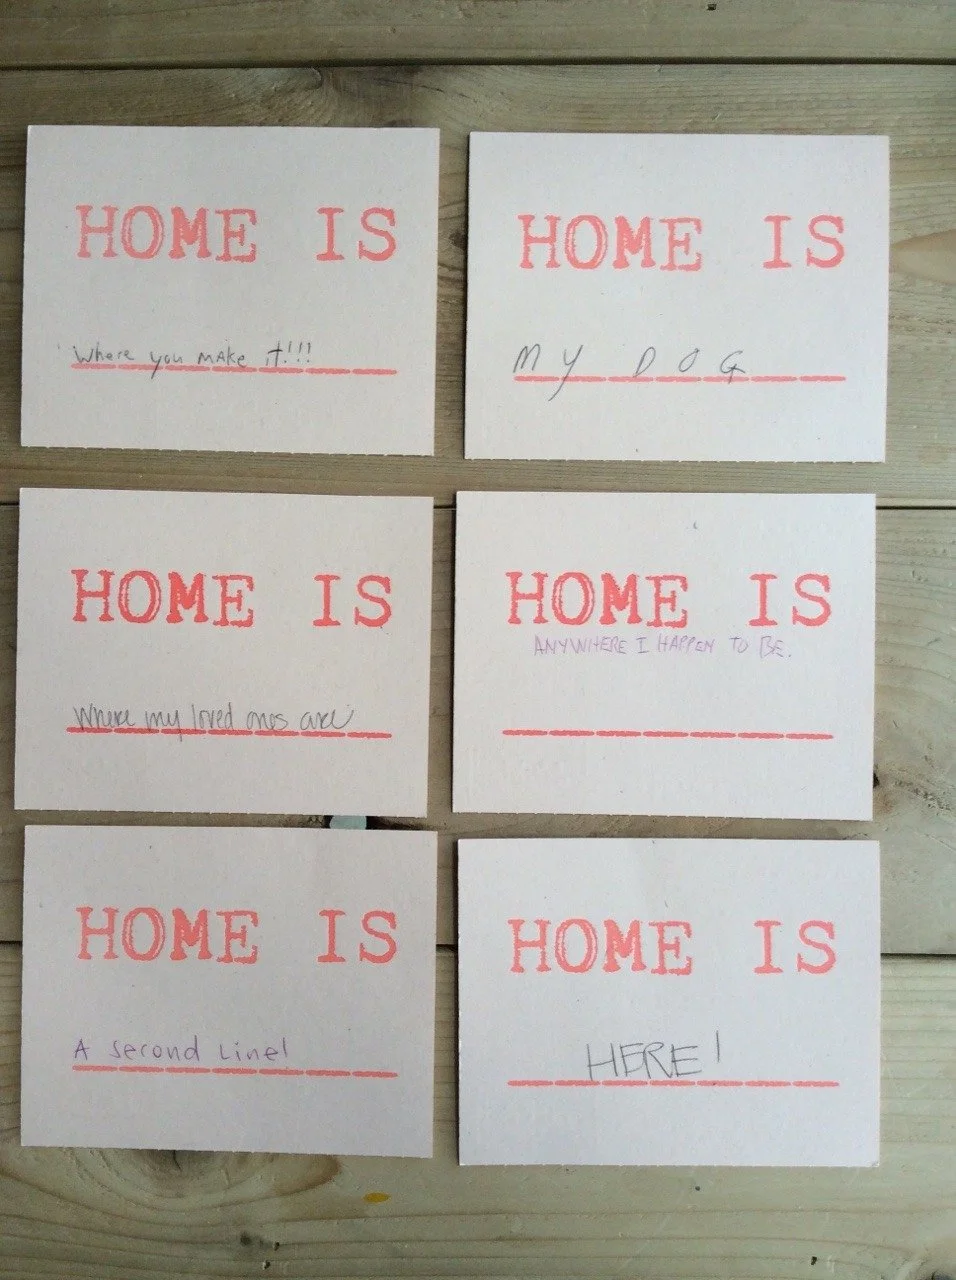 HOME IS
Where you make it!!!
HOME IS
MY DOG
HOME IS
Where my loved ones are
HOME IS
ANYWHERE I HAPPEN TO BE.
HOME IS
A second Line!
HOME IS
HERE!